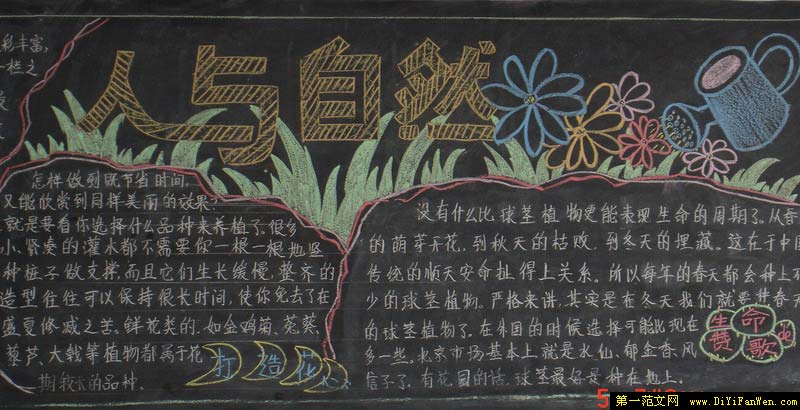 彩丰富,
一栏之
人与自然
怎样做到既节省时间,
又能欣赏到同样美丽的效果?
就是要看你选择什么品种来养植了。很多
小、紧凑的灌木都不需要你一根一根地竖
种桩子做支撑,而且它们生长缓慢,整齐的
造型往往可以保持很长时间,使你免去了在
盛夏修减之苦。鲜花类的,如金鸡菊、芫荽、
藜芦、大戟等植物都属于花
期较长的品种。
打造花
没有什么比球茎植物更能表现生命的周期了。从春
的萌芽开花,到秋天的枯败,到冬天的埋藏。这在于中国
传统的顺天安命扯得上关系。所以每年的春天都会种上不
少的球茎植物。严格来讲,其实是在冬天我们就要
的球茎植物了。在外国的时候选择可能比现在
多一些,北京市场基本上就是水仙、郁金香、风
信子了。有花园的话,球茎最好是种在地上
生命
赞歌
第一范文网 www.DiYiFanWen.com